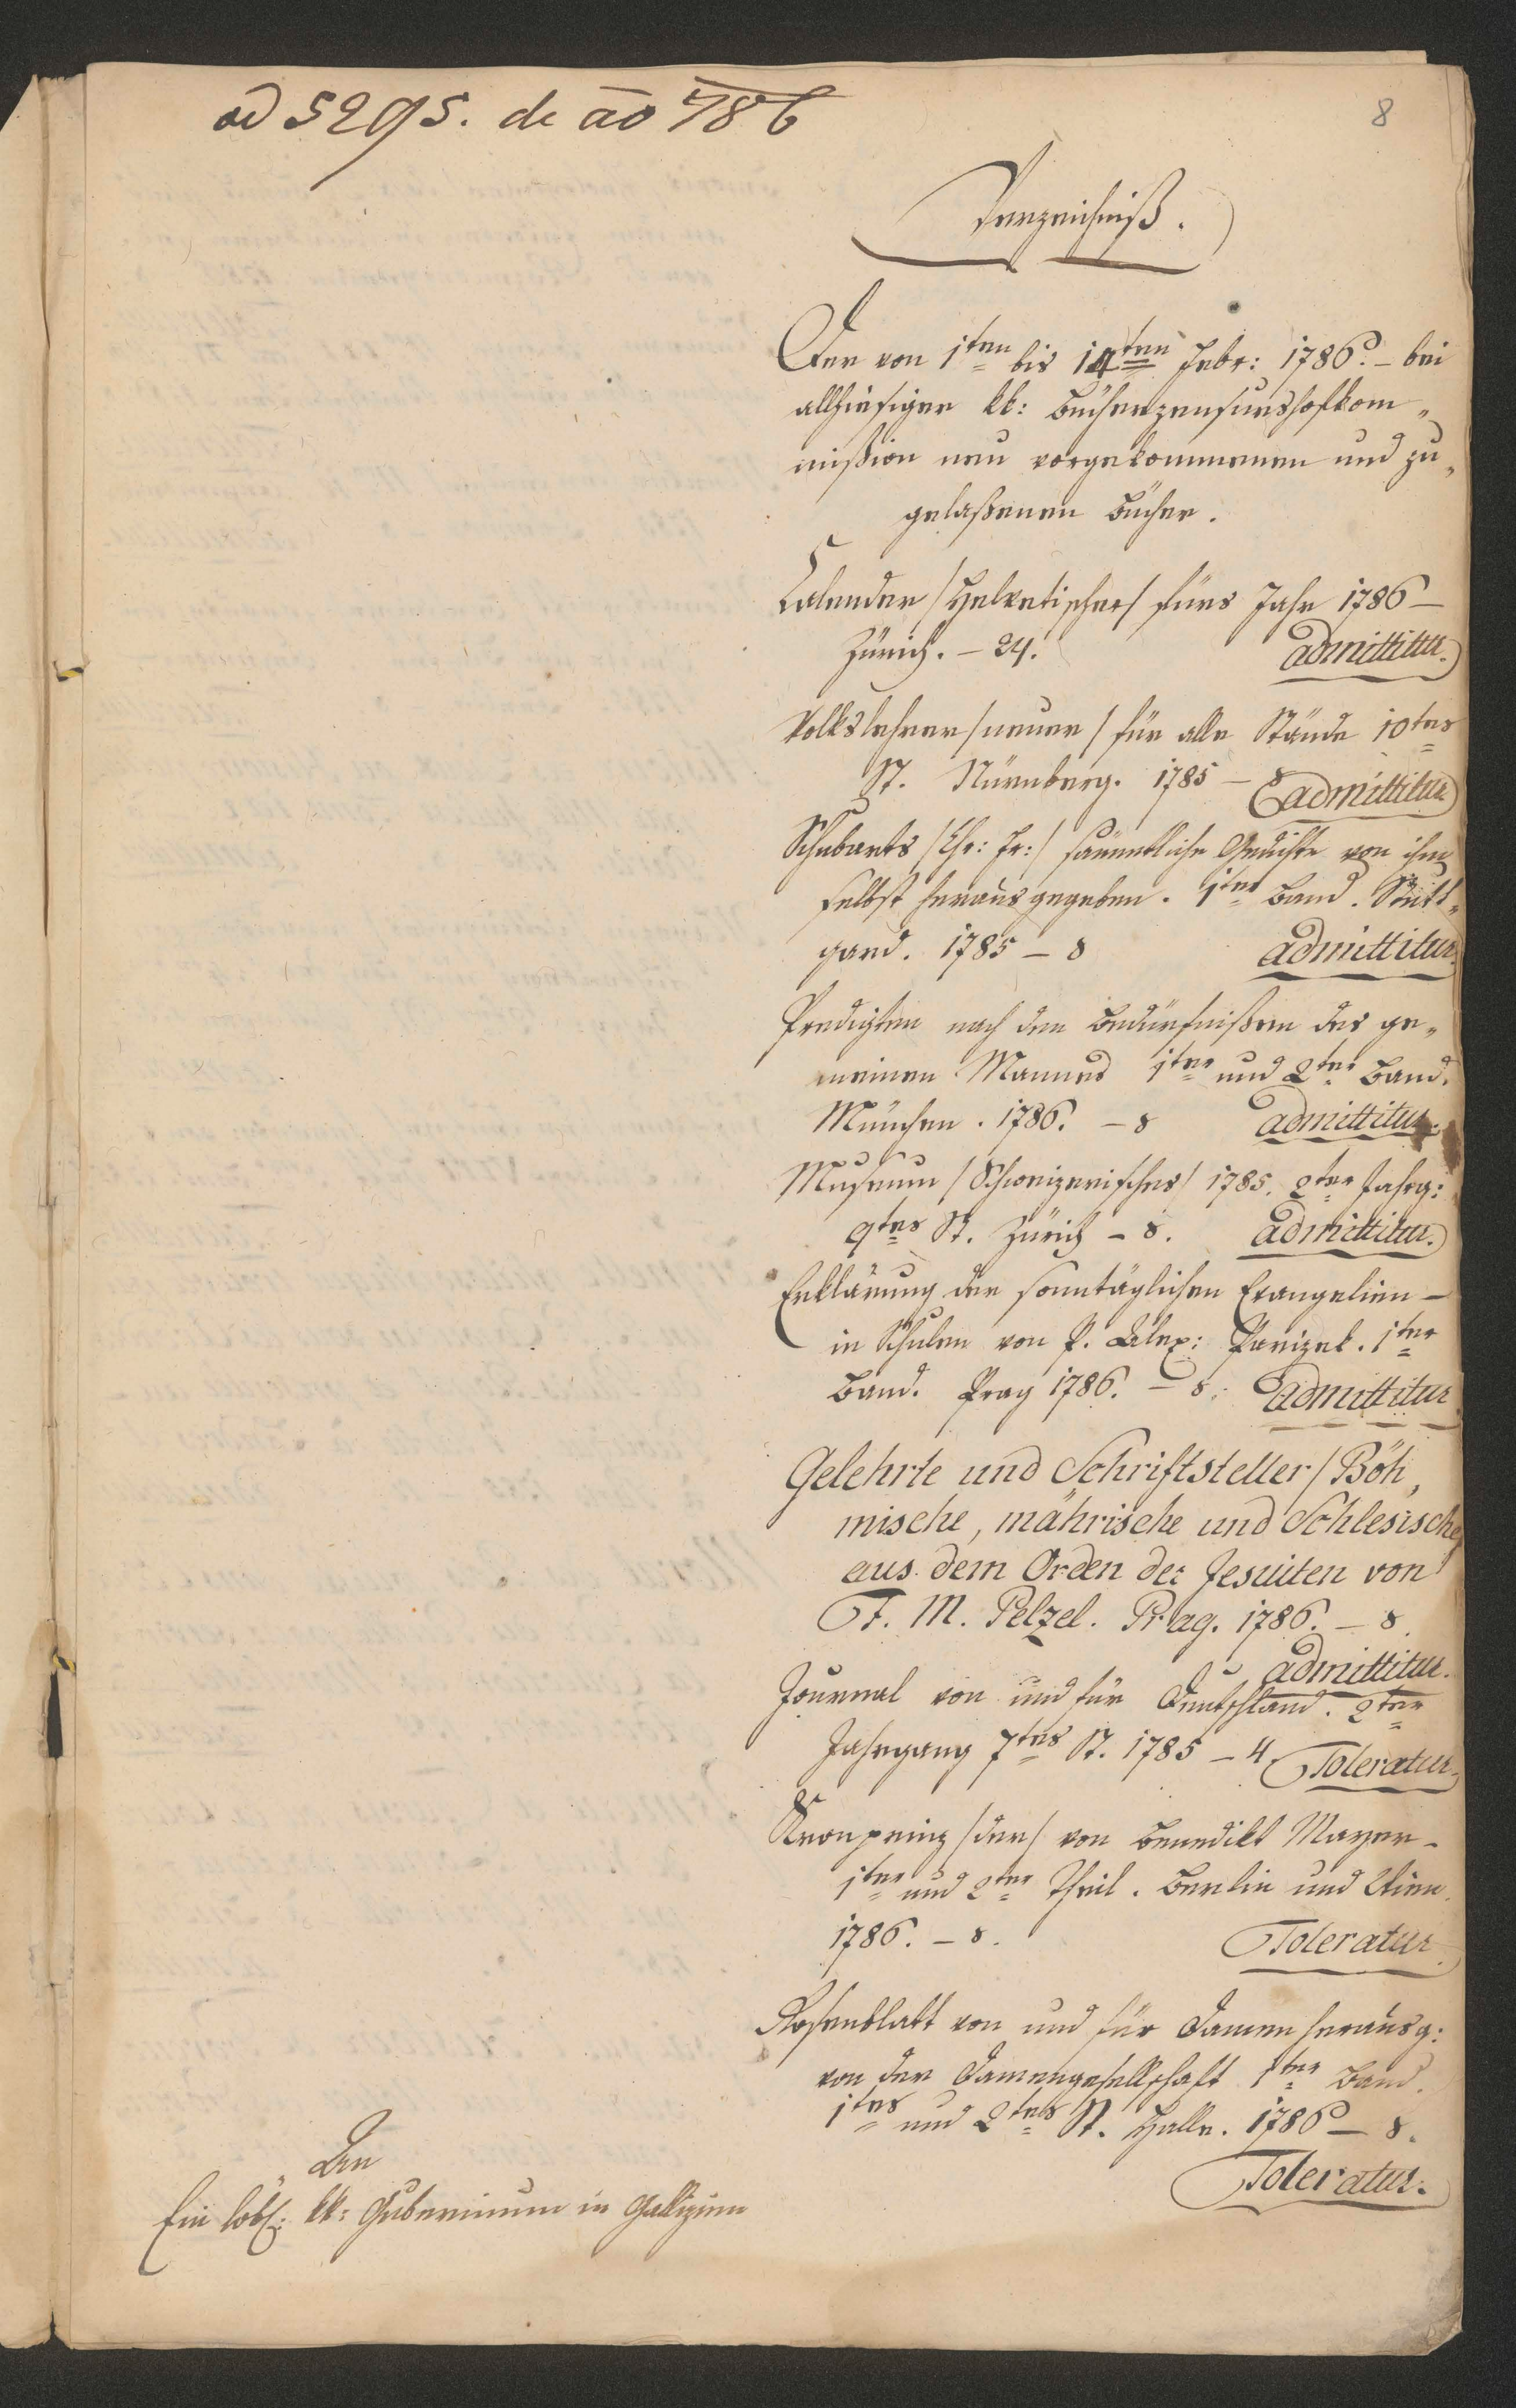 ad 5295. de ao 786
8
Verzeichniß.
Der von 1ten bis 14ten Febr: 1786. – bei
allhiesiger kk: Bücherzensurshofkom„
mißion neu vorgekommenen und zu„
gelaßenen Bücher.
Kalender /Helvetischer/ fürs Jahr 1786 –
Zürich. – 24. admittitur.
Volkslehrer /neuer/ für alle Stände 10tes
St. Nürnberg. 1785 – 8 admittitur
Schubarts /Chr: Fr:/ sämmtliche Gedichte von ihm
selbst herausgegeben. 1ter Band. Stutt„
gard. 1785 – 8 admittitur.
Predigten nach den Bedürfnißen des ge„
meinen Mannes 1ter und 2ter Band.
München. 1786. – 8 admittitur.
Museum /Schweizerisches/ 1785. 2ter Jahrg:
9tes St. Zürich – 8. admittitur.
Erklärung der sonntäglichen Evangelien –
in Schulen von P. Alex: Parizek. 1ter
Band. Prag 1786. – 8. admittitur
Gelehrte und Schriftsteller / Böh„
mische, mährische und Schlesische/
aus dem Orden der Jesuiten von
F. M. Pelzel. Prag. 1786. – 8.
admittitur.
Journal von und für Deutschland. 2ter
Jahrgang 7tes St. 1785 – 4 Toleratur.
Kronprinz /der/ von Benedikt Mayer –
1ter und 2ter Theil. Berlin und Wien.
1786. – 8. Toleratur.
Rosenblatt von und für Damen herausg:
von der Damengesellschaft 1ter Band.
1tes und 2tes St. Halle. 1786 – 8.
Toleratur.
An
Ein löbl: kk: Gubernium in Gallizien